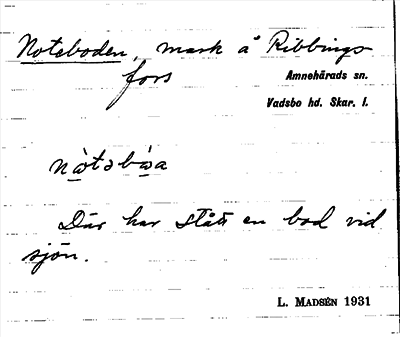 Noteboden, mark å Ribbings
fors
Amnehärads sn.
Vadsbo hd. Skar. l.
Där har stått en bod vid
sjön.
L. MADSÉN 1931